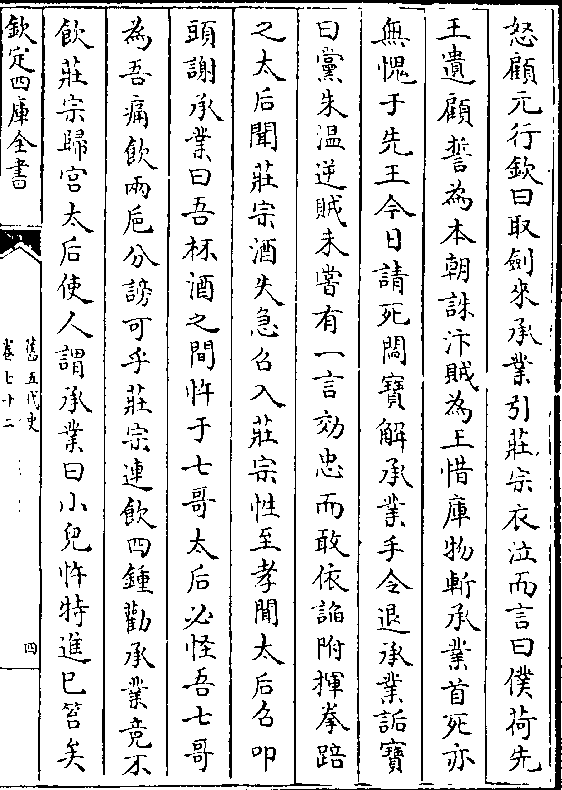 怒顧元行欽曰取劍來承業引莊宗衣泣而言曰僕荷先
王遺顧誓為本朝誅汴賊為王惜庫物斬承業首死亦
無愧于先王今日請死閻寶解承業手令退承業詬寶
曰黨朱温逆賊未嘗有一言効忠而敢依諂附揮拳踣
之太后聞莊宗酒失急召入莊宗性至孝聞太后召叩
頭謝承業曰吾杯酒之間忤于七哥太后必怪吾七哥
為吾痛飲兩巵分謗可乎莊宗連飲四鍾勸承業竟不
飲莊宗歸宮太后使人謂承業曰小兒忤特進已笞矣
欽定四庫全書
舊五代史
卷七十二
四